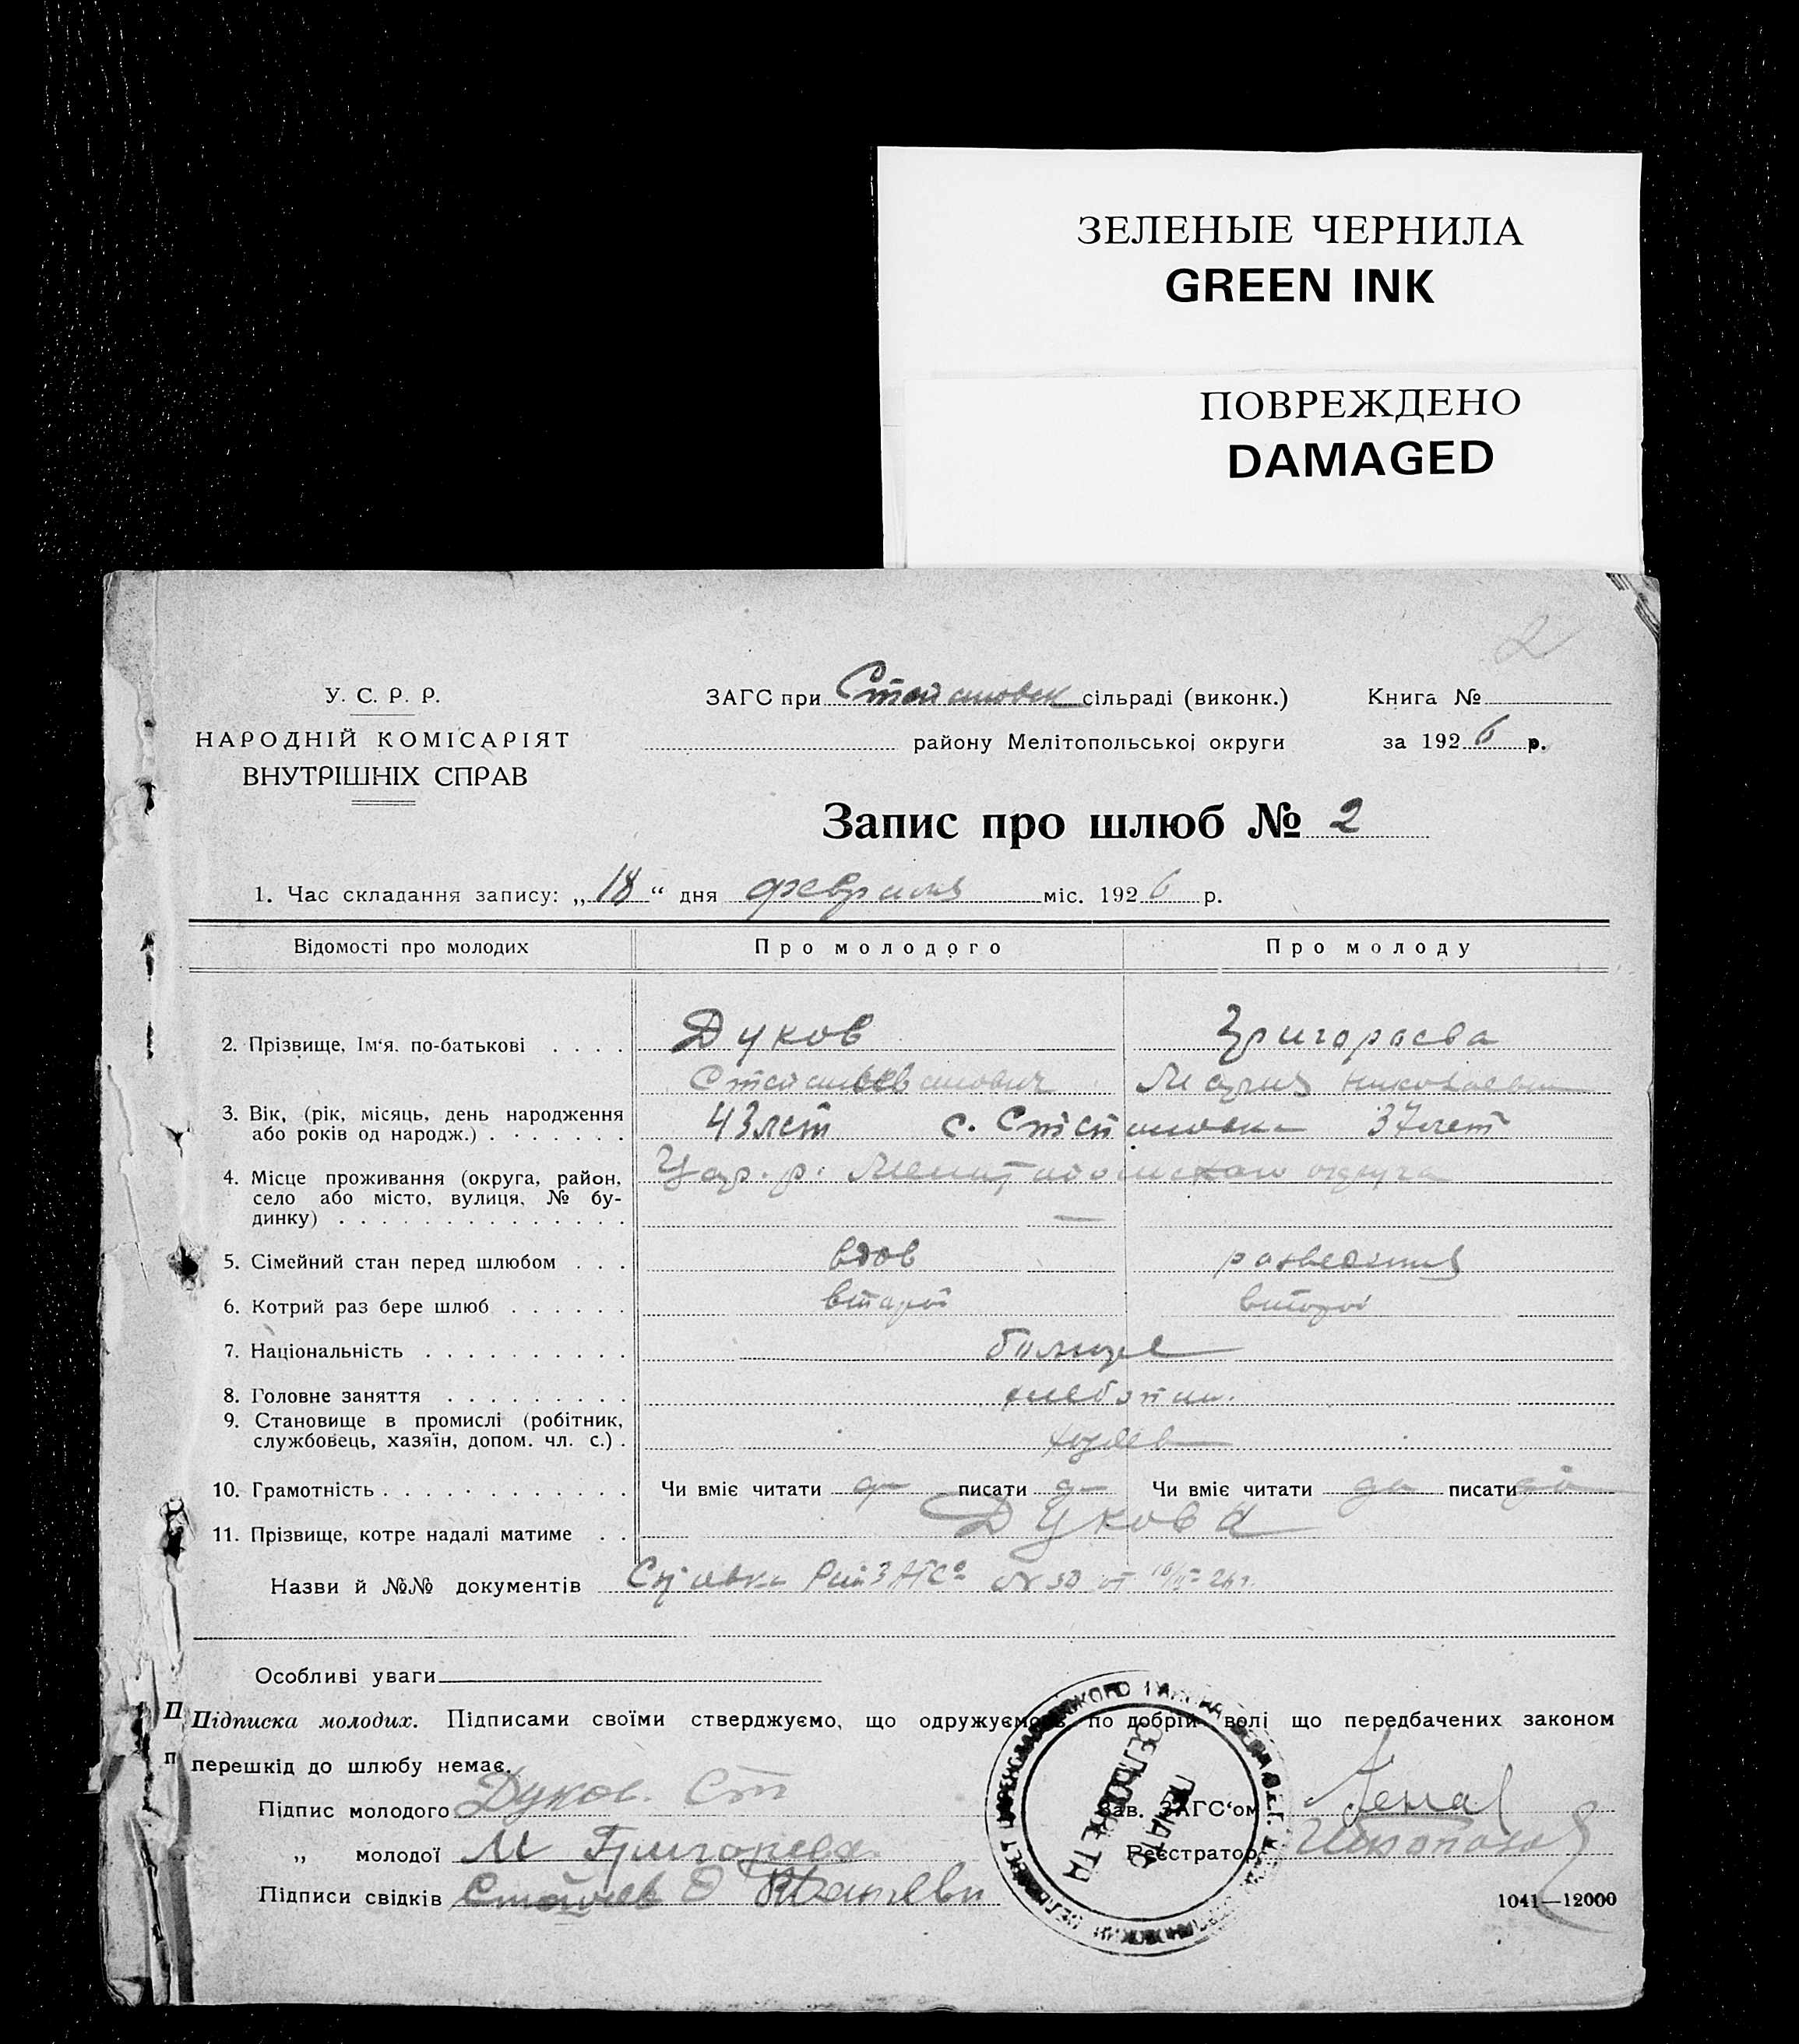 ЗЕЛЕНЫЕ ЧЕРНИЛА
GREEN INK
ПОВРЕЖДЕНО
DAMAGED
2
У. С. Р. Р.
НАРОДНІЙ КОМІСАРІЯТ
ВНУТРІШНІХ СПРАВ
ЗАГС при сільраді (виконк.)
Книга №
району Мелітопольської округи
за 1926 р.
Запис про шлюб № 2
1. Час складання запису: „18“ дня февраля міс. 1926 р.
Відомості про молодих Про молодого Про молоду
2. Прізвище, Ім'я, по-батькові . . . . Дуков Григорьева
Мария Николаевна
3. Вік, (рік, місяць, день народження
або років од народж.) . . . . . . . 43 лет с. 37 лет
4. Місце проживання (округа, район,
село або місто, вулиця, № бу-
динку) . . . . . . . . . . . . . . —
Цар. р. округа
5. Сімейний стан перед шлюбом . . . вдов разведения
6. Котрий раз бере шлюб . . . . . . второй второй
7. Національність . . . . . . . . . . болгаре
8. Головне заняття . . . . . . . . . хлебопаш.
9. Становище в промислі (робітник,
службовець, хазяїн, допом. чл. с.) .
10. Грамотність . . . . . . . . . . . . Чи вміє читати да писати да Чи вміє читати да писати да
11. Прізвище, котре надалі матиме . . Дукова
Назви й №№ документів Справка РайЗАГСа № 50 от 26 г.
Особливі уваги
П Підписка молодих. Підписами своїми стверджуємо, що одружуємось по добрій волі що передбачених законом
п перешкід до шлюбу немає.
Підпис молодого Дуков. Ст
„ молодої М Григорьева
Підписи свідків
Зав. ЗАГС'ом
Реєстратор
1041—12000